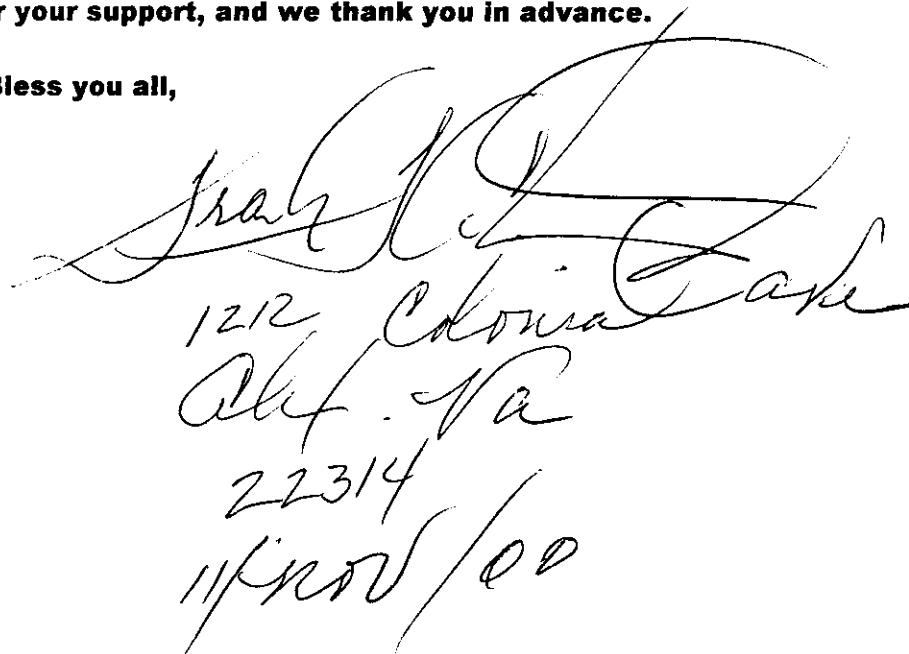 r your support, and we thank you in advance.
Bless you all,
1212 Colonial Ave
Alex. Va
22314
11/Nov/00